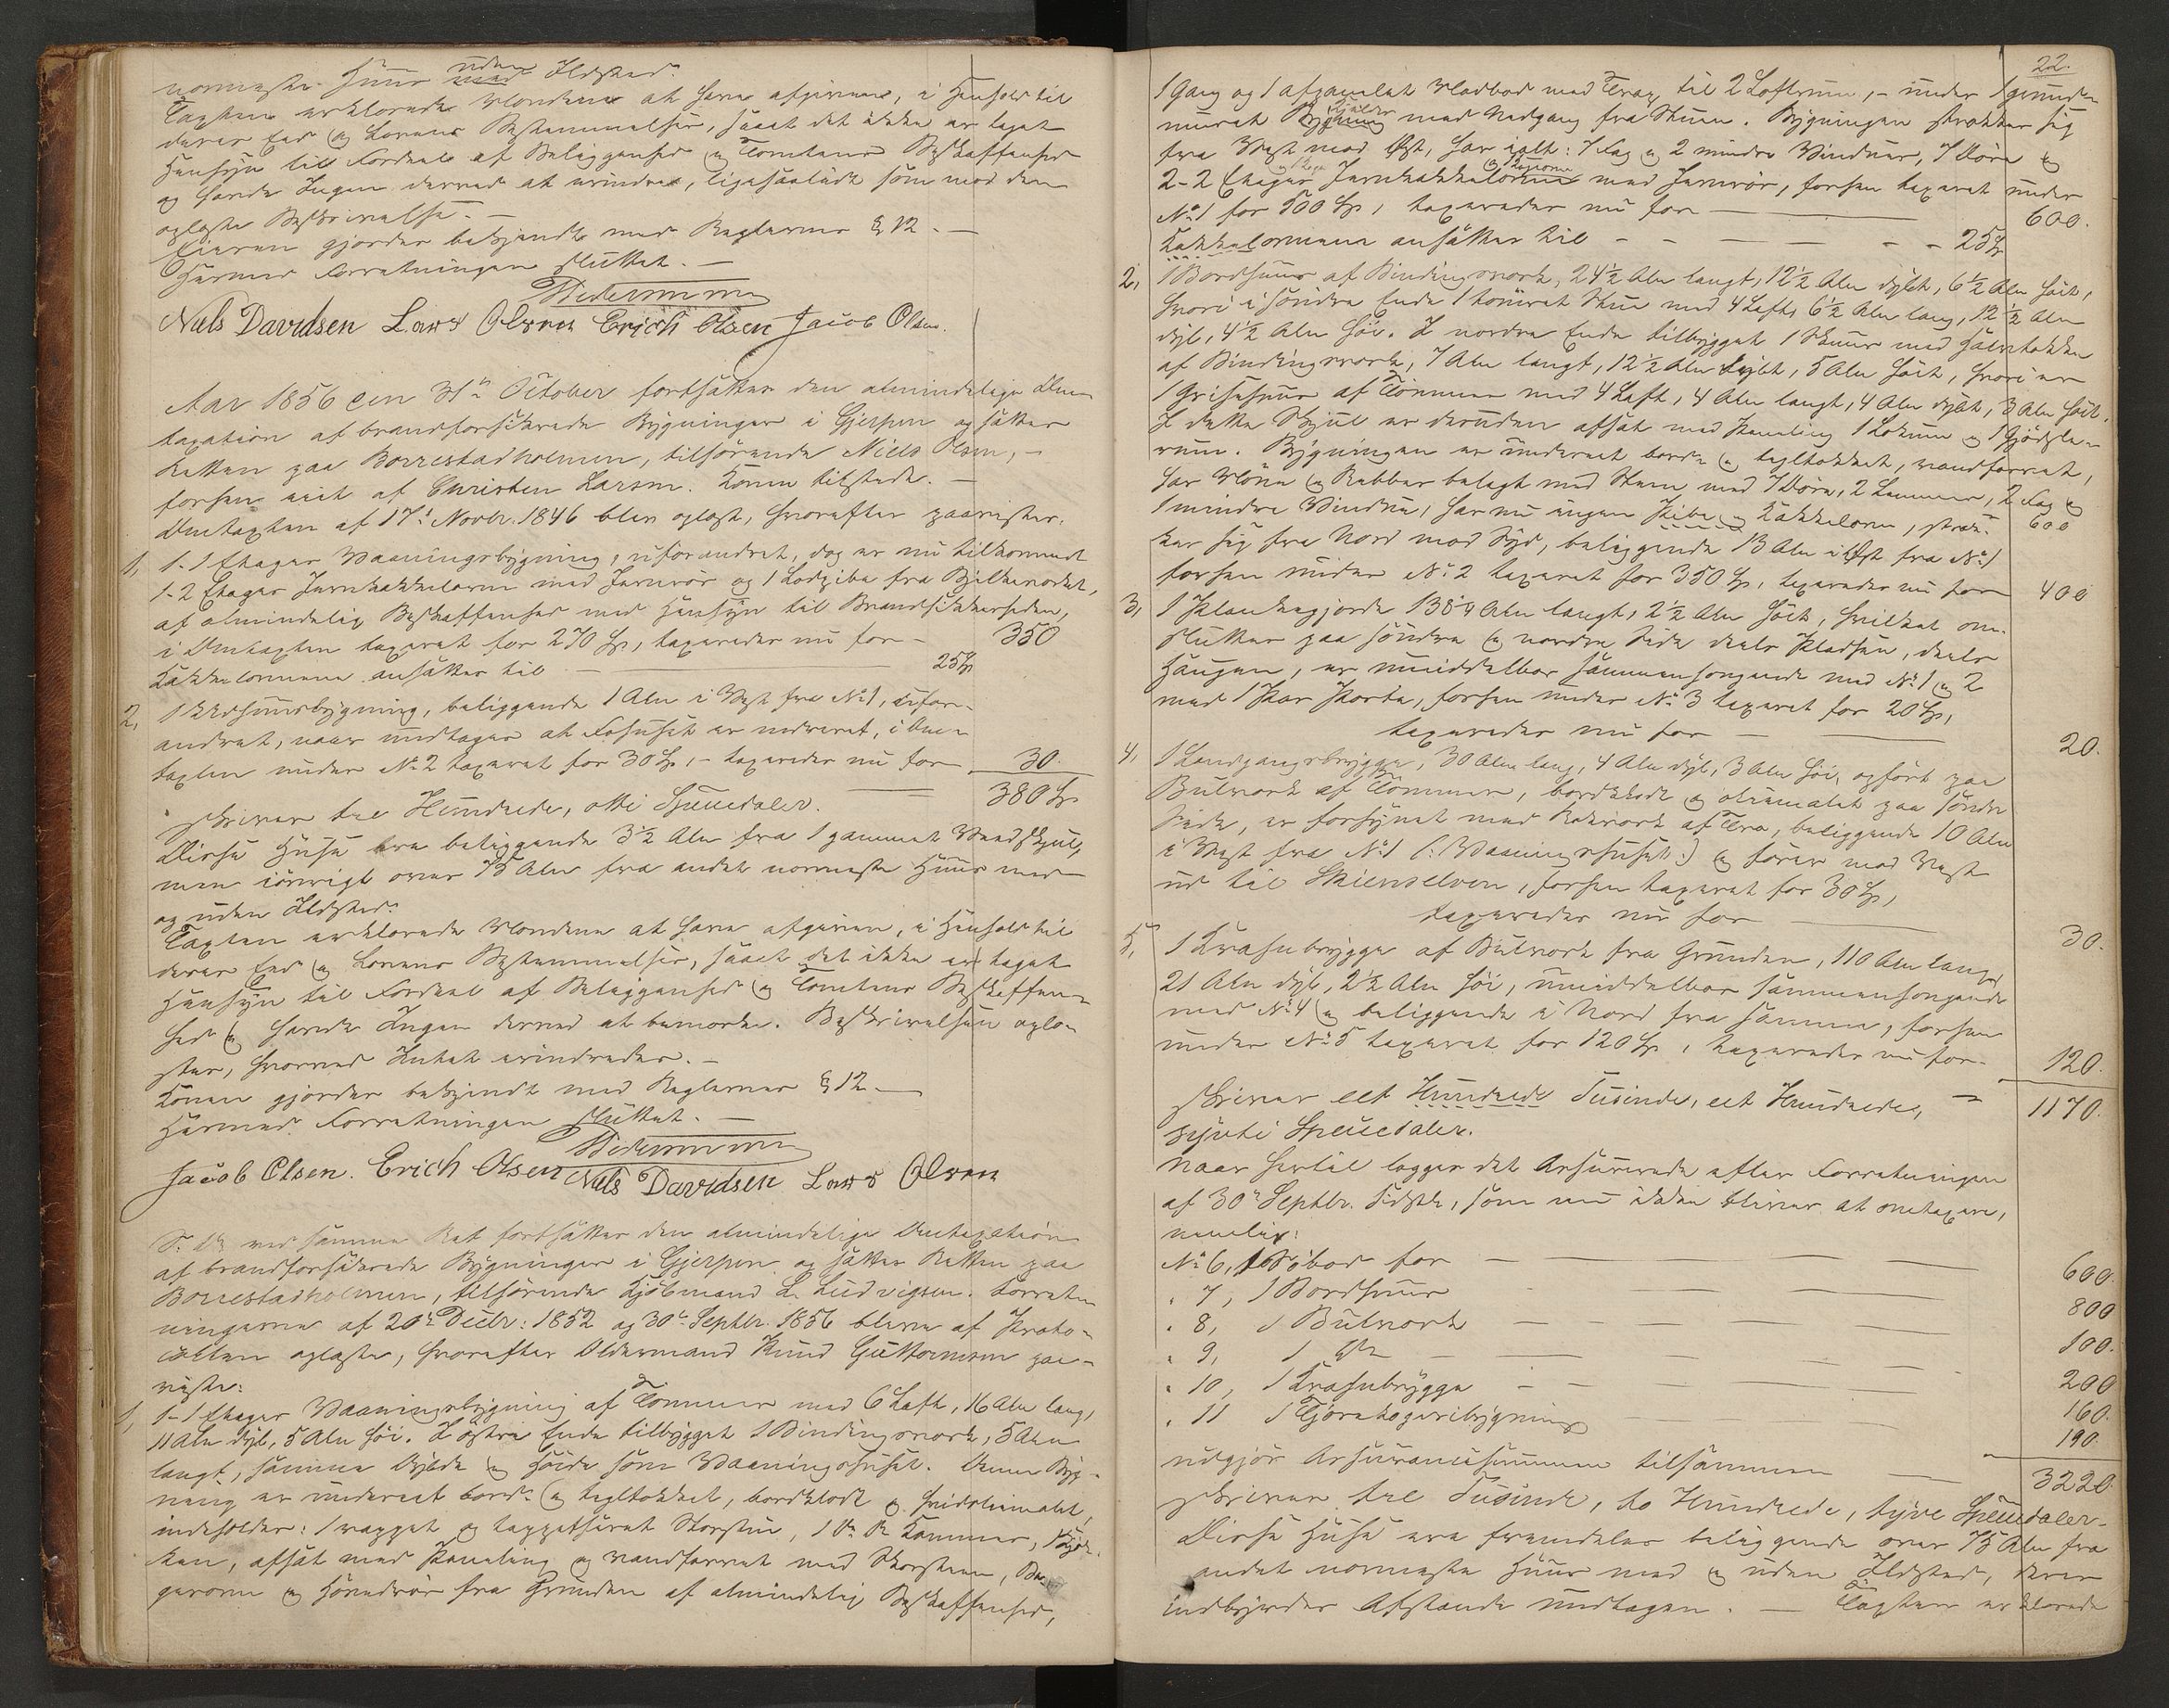 nærmeste Huus uden Ildsted.
Taxten erklærede Mændene at have afgivne, i Henhold til
deres Eed og Lovens Bestemmelser, saaat det ikke er taget
Hensyn til Fordeel af Beliggenhed og Tomtens Beskaffenhed
og havde Ingen derved at erindre, ligesaalidt som mod den
oplæste Beskrivelse. —
Eieren gjordes bekjendt med Reglernes § 12. —
Hermed Forretningen sluttet. —
Niels Davidsen Lars Olsen Erich Olsen Jacob Olsen.
Aar 1856 den 31te October fortsattes den almindelige Om-
taxation af brandforsikrede Bygninger i Gjerpen og sattes
Retten paa Borrestadholmen, tilhørende Niels Olsen, —
forhen eiet af Christen Larsen. Konen tilstede. —
Omtaxten af 17de Novbr. 1846 blev oplæst, hvorefter paavistes:
1, 1-1 Etages Vaaningsbygning, uforandret, dog er nu tilkommet
1-2 Etages Jernkakkelovn med Jernrør og 1 Lodpibe fra Bjelkerne,
af almindelig Beskaffenhed med Hensyn til Brandsikkerheden,
i Omtaxten taxeret for 270 Sp, taxeredes nu for — 350
Kakkelovnene ansættes til — 25 Sp
2, 1 Udhuusbygning, beliggende 1 Alen i Vest fra No 1, ufor-
andret, naar undtages at Fæhuset er nedrevet, i Om-
taxten under No 2 taxeret for 30 Sp, — taxeredes nu for 30.
380 Sp
skriver tre Hundrede, otti Speciedaler.
Disse Huse ere beliggende 3½ Alen fra 1 gammelt Vedskjul,
men iøvrigt over 75 Alen fra andet nærmeste Huus med
og uden Ildsted.
Taxten erklærede Mændene at have afgiven, i Henhold til
deres Eed og Lovens Bestemmelser, saaat det ikke er taget
Hensyn til Fordeel af Beliggenhed og Tomtens Beskaffen-
hed og havde Ingen derved at bemærke. Beskrivelsen oplæ-
stes, hvorved Intet erindredes. —
Konen gjordes bekjendt med Reglernes § 12. —
Hermed Forretningen sluttet. —
Jacob Olsen. Erich Olsen Niels Davidsen Lars Olsen
S. D. ved samme Ret fortsattes den almindelige Omtaxation
af brandforsikrede Bygninger i Gjerpen og sattes Retten paa
Borrestadholmen, tilhørende Kjøbmand L. Ludvigsen. Forret-
ningerne af 20de Decbr: 1852 og 30te Septbr. 1856 bleve af Proto-
collen oplæste, hvorefter Oldermand Knud Guttormsen paa-
viste:
1, 1-1 Etages Vaaningsbygning af Tømmer med 6 Laft, 16 Alen lang,
11 Alen dyb, 5 Alen høi. I østre Ende tilbygget 1 Bindingsværk, 5 Alen
langt, samme Dybde og Høide som Vaaningshuset. Denne Byg-
ning er underet bord- og tegltækket, bordklædt og hvidoliemalet,
indeholder: 1 og Storstue, 1 Do Do Kammer, 1 Kjøk-
ken, afsat med Paneling og vandfarvet med Skorsteen, Ba-
gerovn og fra Grunden af almindelig Beskaffenhed,
22.
1 Gang og 1 afpanelet Madbod med Trap til 2 Loftrum, — under 1 grund-
muret Kjælder med Nedgang fra Stuen. Bygningen strækker sig
fra Vest mod Øst, har ialt: 7 Fag og 2 mindre Vinduer, 7 Døre og
2-2 Etages Jernkakkelovne med Jernrør, forhen taxeret under
No 1 for 500 Sp, taxeredes nu for — 600.
Kakkelovnene ansættes til — — — 25 Sp
2, 1 Bordhuus af Bindingsværk, 24½ Alen langt, 12½ Alen dybt, 6½ Alen høit,
hvori i søndre Ende 1 tømret Stue med 4 Laft, 6½ Alen lang, 12½ Alen
dyb, 4½ Alen høi. I nordre Ende tilbygget 1 Skuur med Halvtække
af Bindingsværk, 7 Alen langt, 12½ Alen dybt, 5 Alen høit, hvori er
1 Grisehuus af Tømmer med 4 Laft, 4 Alen langt, 4 Alen dybt, 3 Alen høit.
I dette Skjul er desuden afsat med Paneling 1 Lokum og 1 Gjødsle-
rum. Bygningen er underet bord- og tegltækket, vandfarvet,
har Møne og Kubber belagt med Steen med 7 Døre, 2 Lemmer, 2 Fag og
1 mindre Vindue, har nu ingen Pibe og Kakkelovn, stræk- 600
ker sig fra Nord mod Syd, beliggende 13 Alen i Øst fra No 1
forhen under No 2 taxeret for 350 Sp, taxeredes nu for 400
3, 1 Plankegjerde 138¼ Alen langt, 2½ Alen høit, hvilket om-
slutter paa søndre og nordre Side deels Pladsen, deels
Haugen, er umiddelbar sammenhængende med No 1 og 2
med 1 Par Porte, forhen under No 3 taxeret for 20 Sp,
taxeredes nu for — 20.
4, 1 Landgangsbrygge, 30 Alen lang, 4 Alen dyb, 3 Alen høi, opført paa
Bulværk af Tømmer, bordklædt og oliemalet paa søndre
Side, er forsynet med Rækværk af Træ, beliggende 10 Alen
i Vest fra No 1 (: Vaaningshuset :) og fører mod Vest
ud til Skienselven, forhen taxeret for 30 Sp,
taxeredes nu for — 30.
5, 1 Krasebrygge af Bulværk fra Grunden, 110 Alen lang,
21 Alen dyb, 2½ Alen høi, umiddelbar sammenhængende
med No 4 og beliggende i Nord fra samme, forhen
under No 5 taxeret for 120 Sp, taxeredes nu for — 120.
skriver eet Hundrede Tusinde, eet Hundrede, — 1170.
sytti Speciedaler.
Naar hertil lægges det Assurerede efter Forretningen
af 30te Septbr. sidste, som nu ikke bliver at omtaxere,
nemlig:
No 6, 1 Søbod for — 600.
" 7, 1 Bordhuus — 800
" 8, 1 Bulværk — 100.
" 9, 1 Do — 200
" 10, 1 Krasebrygge — 160.
" 11 1 Tjærekogeribygning — 190.
udgjør Assurancesummen tilsammen — 3220.
skriver tre Tusinde, to Hundrede, tyve Speciedaler.
Disse Huse ere fremdeles beliggende over 75 Alen fra
andet nærmeste Huus med og uden Ildsted, deres
indbyrdes Afstande undtagen. — Taxten erklærede